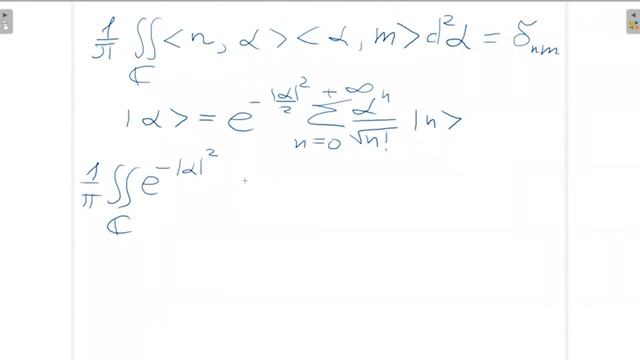 1/π ∬_ℂ <n, α> <α, m> d²α = δ_nm
|α> = e^(-|α|²/2) ∑_(n=0)^(+∞) αⁿ/√n! |n>
1/π ∬_ℂ e^(-|α|²)